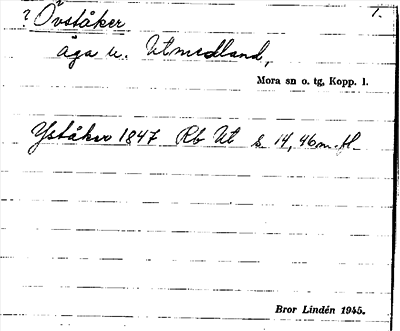 ? Övståker 1.
äga u. Utmedland,
Mora sn o. tg, Kopp. l.
Yståker 1847 Rb Ut s 14, 46 m. fl.
Bror Lindén 1945.